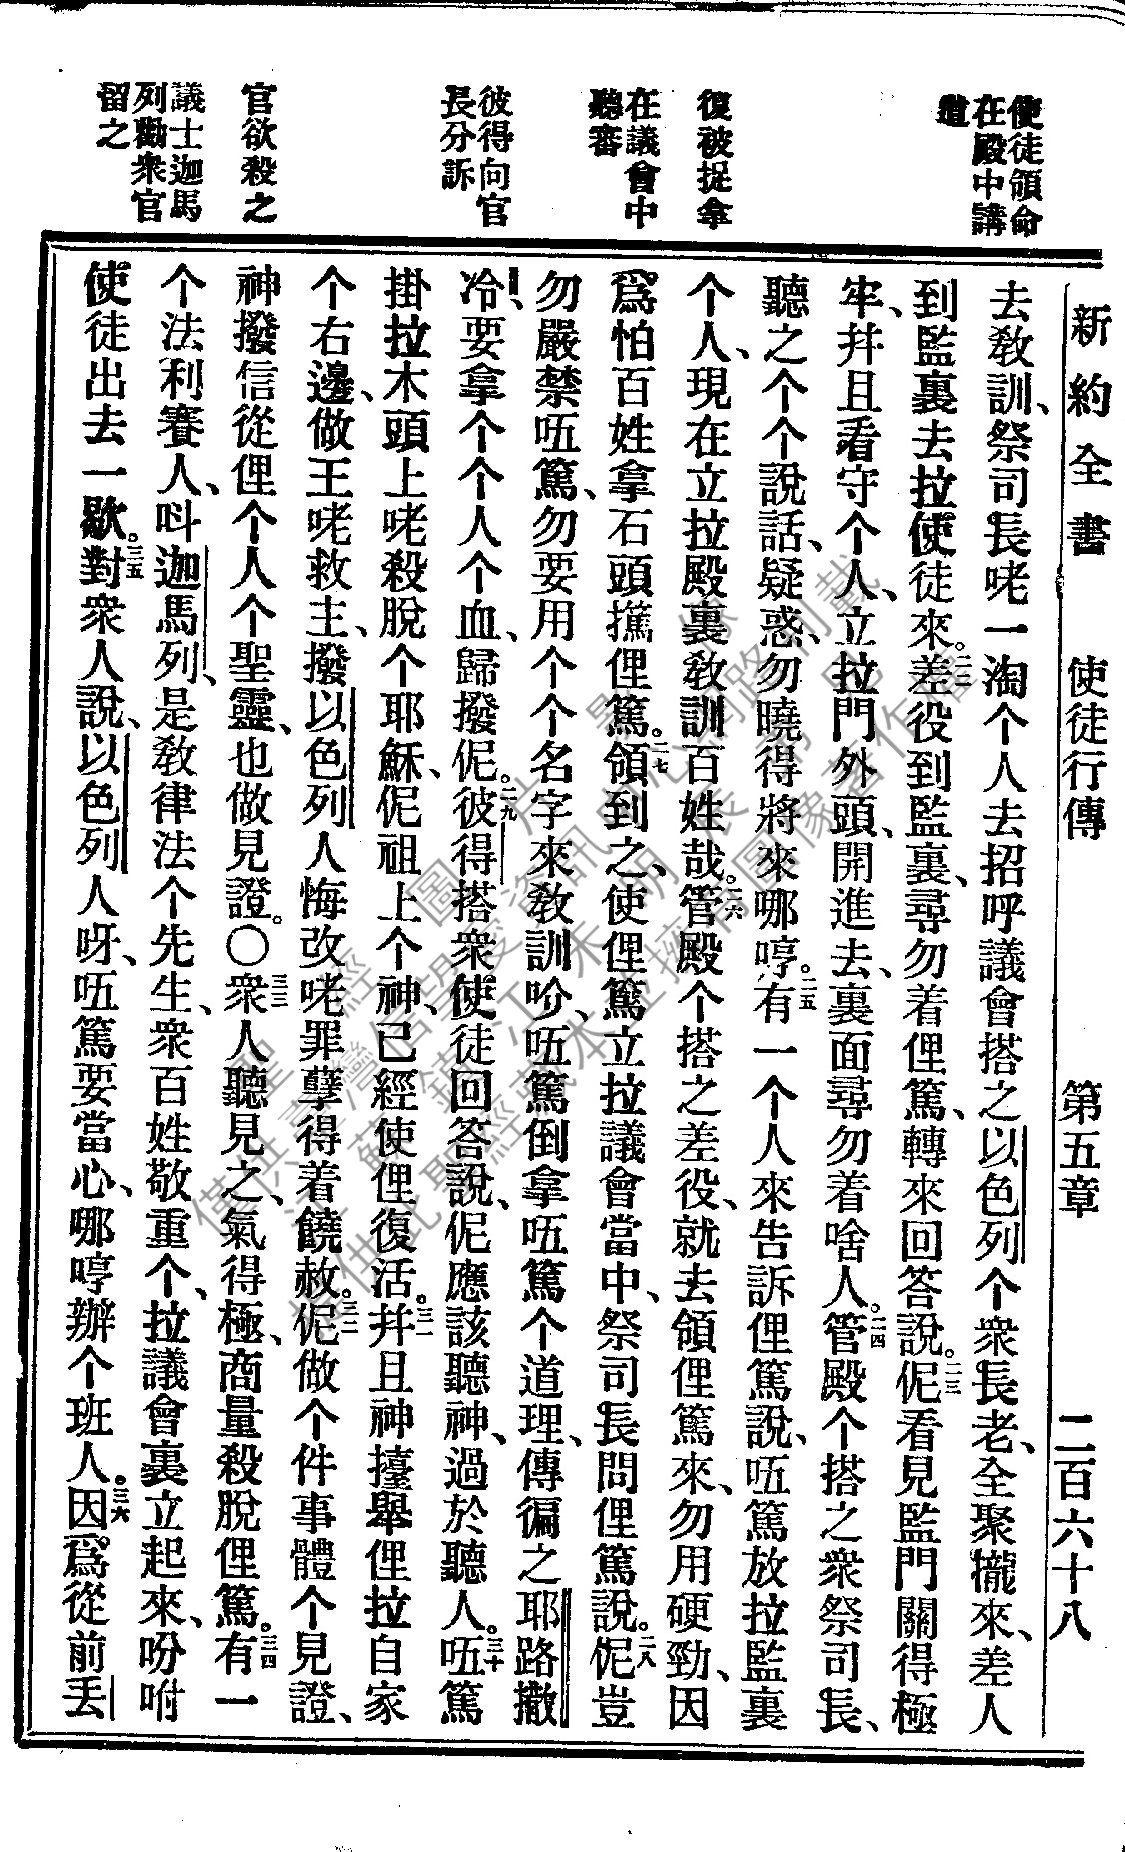 新約全書 使徒行傳 第五章 二百六十八
使徒領命
在殿中講
道
復被捉拿
在議會中
聽審
彼得向官
長分訴
官欲殺之
議士迦馬
列勸衆官
留之
去敎訓、祭司長咾一淘个人去招呼議會搭之以色列个衆長老、全聚攏來、差人
到監裏去拉使徒來。二二差役到監裏、尋勿着俚篤、轉來回答說。二三伲看見監門關得極
牢、幷且看守个人、立拉門外頭、開進去、裏面尋勿着啥人。二四管殿个搭之衆祭司長、
聽之个个說話、疑惑勿曉得將來哪哼。二五有一个人來告訴俚篤說、㕶篤放拉監裏
个人、現在立拉殿裏敎訓百姓哉。二六管殿个搭之差役、就去領俚篤來、勿用硬勁、因
爲怕百姓拿石頭攨俚篤。二七領到之、使俚篤立拉議會當中、祭司長問俚篤說。二八伲豈
勿嚴禁㕶篤、勿要用个个名字來敎訓吤、㕶篤倒拿㕶篤个道理、傳徧之耶路撒
冷、要拿个个人个血、歸撥伲。二九彼得搭衆使徒回答說、伲應該聽神、過於聽人。三十㕶篤
掛拉木頭上咾殺脫个耶穌、伲祖上个神、已經使俚復活。三一幷且神擡舉俚拉自家
个右邊、做王咾救主、撥以色列人悔改咾罪孽得着饒赦。三二伲做个件事體个見證、
神撥信從俚个人个聖靈、也做見證。〇三三衆人聽見之、氣得極、商量殺脫俚篤。三四有一
个法利賽人、呌迦馬列、是敎律法个先生、衆百姓敬重个、拉議會裏立起來、吩咐
使徒出去一歇。三五對衆人說、以色列人呀、㕶篤要當心、哪哼辦个班人。三六因爲從前丟